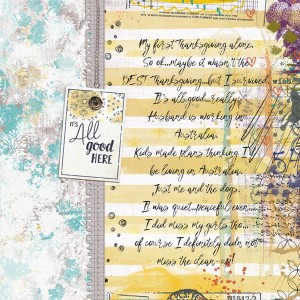 My first Thanksgiving alone.
So ok...maybe it wasn't the
BEST Thanksgiving...but I survived.
It's all good...really.
Husband is working in
Australia.
Kids made plans thinking I'd
be living in Australia.
Just me and the dogs.
It was quiet...peaceful even...
I did miss my girls tho...
of course I definitely did not
miss the clean-up!
IT'S
All
good
HERE
wish